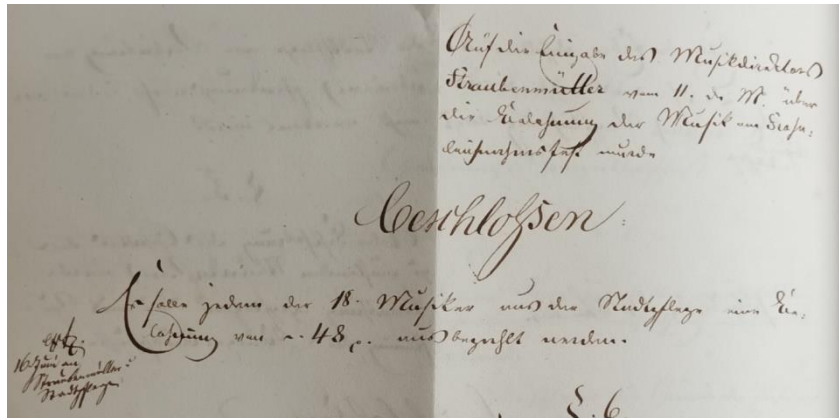 Auf die Eingabe des Musikdirektors
Straubenmüller vom 11. d. M. über
die Belohnung der Musik am Frohn-
leichnahmsfest wurde
beschlossen:
Es solle jedem der 18. Musiker aus der Stadtpflege eine Be-
lohnung von 48 ausbezahlt werden.
16 Juni an
Straubenmüller
Stadtpflege
§. 6